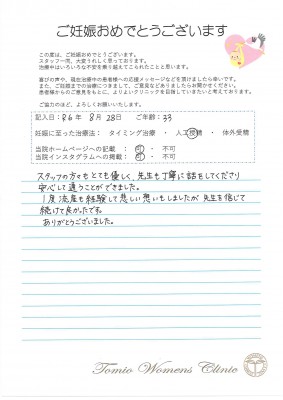 ご妊娠おめでとうございます
この度は、ご妊娠おめでとうございます。
スタッフ一同、大変うれしく思っております。
治療中はいろいろな不安を乗り越えてこられたことと思います。
喜びの声や、現在治療中の患者様への応援メッセージなどを頂けましたら幸いです。
また、ご妊娠までの治療につきまして、ご意見などありましたらお聞かせください。
患者様からのご意見をもとに、よりよいクリニックを目指していきたいと考えております。
ご協力のほど、よろしくお願いいたします。
記入日：R6 年 8 月 28日 ご年齢：33
妊娠に至った治療法： タイミング治療 ・ 人工授精 ・ 体外受精
当院ホームページへの記載 ： 可 ・ 不可
当院インスタグラムへの掲載 ： 可 ・ 不可
スタッフの方々もとても優しく、先生も丁寧に話をしてくださり
安心して通うことができました。
1度流産も経験して悲しい想いもしましたが先生を信じて
続けて良かったです。
ありがとうございました。
Tomio Womens Clinic